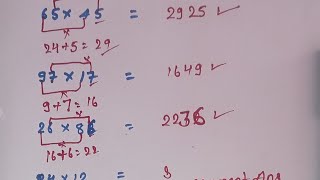 65 × 45 = 2925 ✓
24+5 = 29 ✓
97 × 17 = 1649 ✓
9+7 = 16
26 × 86 = 2236 ✓
16+6 = 22
24 × 12 =
Ans